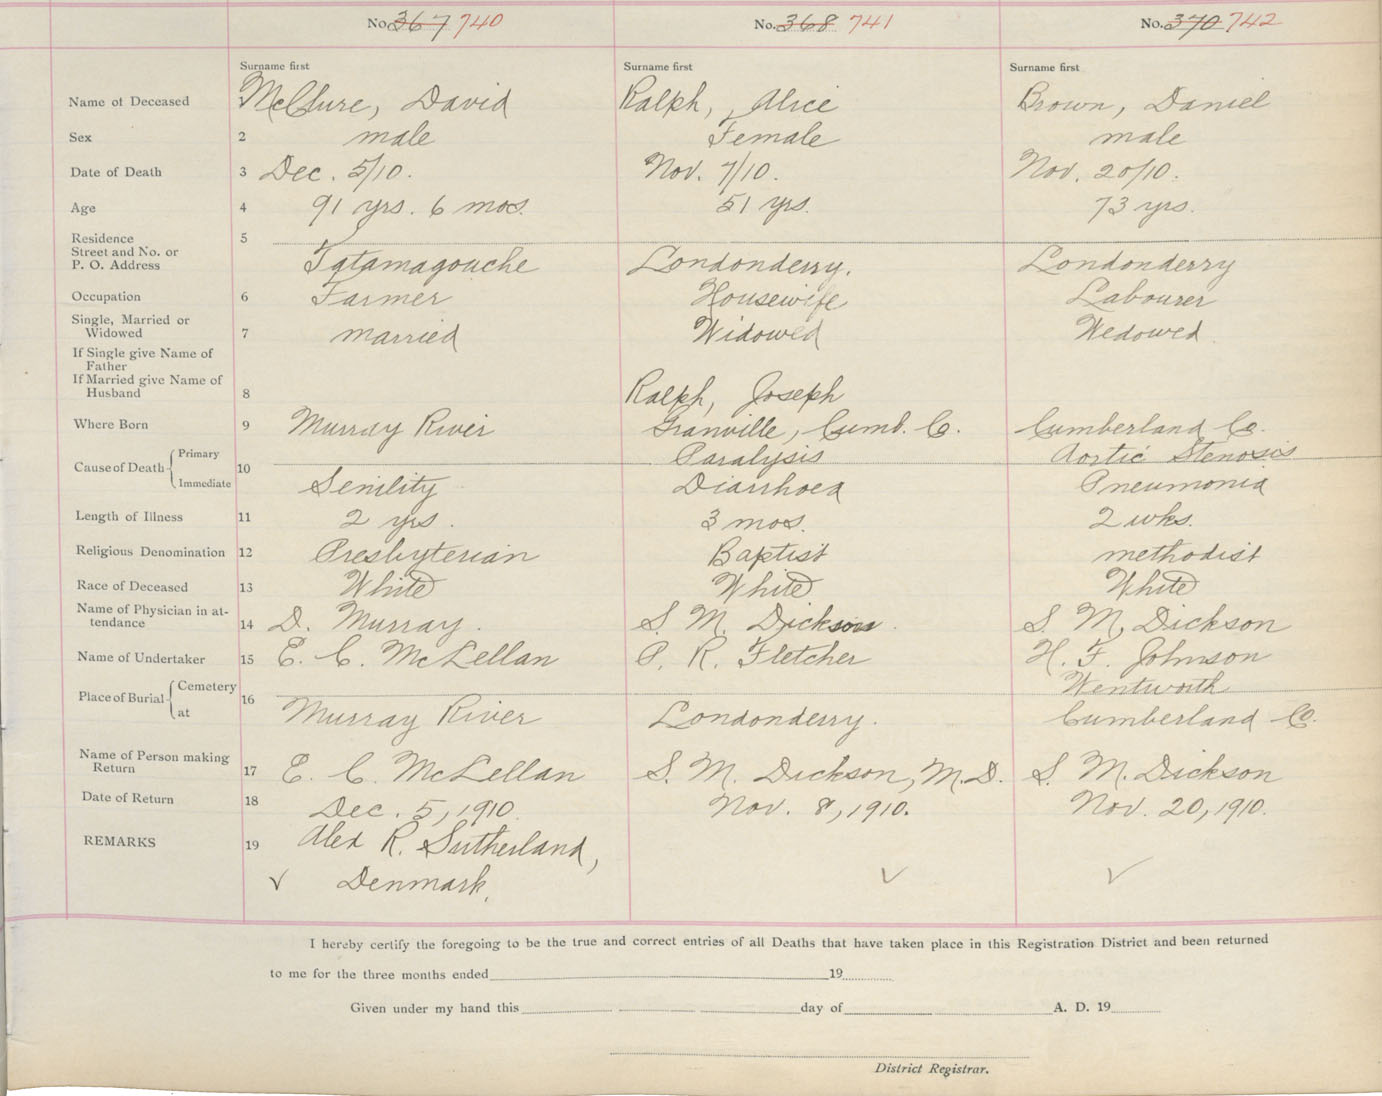 No. 367 740 No. 368 741 No. 370 742
Surname first Surname first Surname first
Name of Deceased 1 McClure, David Ralph, Alice Brown, Daniel
Sex 2 male Female male
Date of Death 3 Dec. 5/10. Nov. 7/10. Nov. 20/10.
Age 4 91 yrs. 6 mos. 51 yrs. 73 yrs.
Residence 5
Street and No. or
P. O. Address Tatamagouche Londonderry. Londonderry
Occupation 6 Farmer Housewife Labourer
Single, Married or
Widowed 7 married Widowed Wedowed
If Single give Name of
Father
If Married give Name of
Husband 8 Ralph, Joseph
Where Born 9 Murray River Granville, Cumb. C. Cumberland Co.
Cause of Death Primary 10 Paralysis Aortic Stenosis
Immediate Senility Diarrhoea Pneumonia
Length of Illness 11 2 yrs. 3 mos. 2 wks.
Religious Denomination 12 Presbyterian Baptist methodist
Race of Deceased 13 White White White
Name of Physician in at-
tendance 14 D. Murray. S. M. Dickson. S. M. Dickson
Name of Undertaker 15 E. C. McLellan P. R. Fletcher H. F. Johnson
Place of Burial Cemetery 16 Wentworth
at Murray River Londonderry. Cumberland Co.
Name of Person making
Return 17 E. C. McLellan S. M. Dickson, M.D. S. M. Dickson
Date of Return 18 Dec. 5, 1910. Nov. 8, 1910. Nov. 20, 1910.
REMARKS 19 Alex R. Sutherland,
Denmark,
I hereby certify the foregoing to be the true and correct entries of all Deaths that have taken place in this Registration District and been returned
to me for the three months ended 19
Given under my hand this day of A. D. 19
District Registrar.